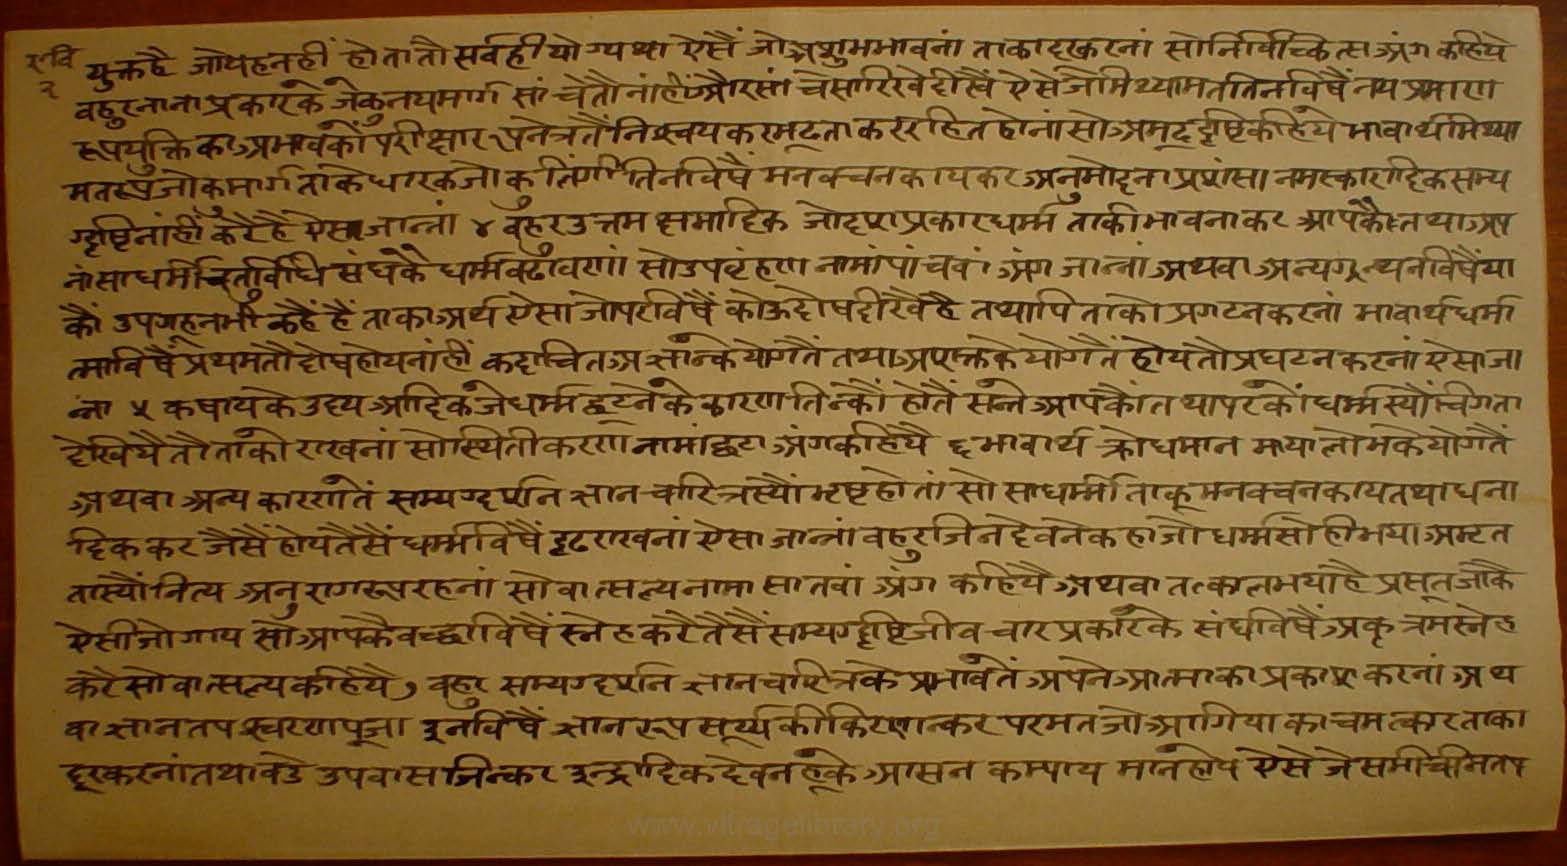 युक्त है जो यह नहीं होता तौ सर्व ही योग्य था ऐसैं जो अशुभभावनां ताका दूरकरनां सो निर्विचिकित्सा अंग कहिये
बहुर नाना प्रकार के जे कुनयमार्ग सांचे तौ नांहीं और सांचे सारिखे दीखैं ऐसे जे मिथ्यामत तिन विषैं नय प्रमाण
रूप युक्ति का अभाव कौं परीक्षारूप नेत्रतैं निश्चय कर मूढता कर रहित होनां सो अमूढदृष्टि कहिये भावार्थ मिथ्या
मतरूप जो कुमार्ग ताके धारक जो कुलिंगी तिन विषैं मन वचन काय कर अनुमोदना प्रशंसा नमस्कारादिक सम्य
ग्दृष्टि नांहीं करै हैं ऐसा जान्नां ४ बहुर उत्तम क्षमादिक जो दश प्रकार धर्म्म ताकी भावना कर आपकै तथा अप
नां साधर्मी चतुर्विधि संघकै धर्म्म बढावणां सो उपबृंहण नामां पांचवां अंग जान्नां अथवा अन्य ग्रन्थन विषैं या
कौं उपगूहन भी कहैं हैं ताका अर्थ ऐसा जो पर विषैं कोऊ दोष दीखै है तथापि ताको प्रगट न करनां भावार्थ धर्मा
त्मा विषैं प्रथम तौ दोष होय नांहीं कदाचित अज्ञान्के योगतैं तथा अशक्तके योगतैं होय तौ प्रघट न करनां ऐसा जा
न्नां ५ कषाय के उदय आदिक जे धर्म्म छूटनै के कारण तिन्कौं होतैं सन्ते आपकौं तथा पर कौं धर्म्मस्यौं चिगता
देखियै तौ ताकौ राखनां सो स्थितीकरण नामां छटा अंग कहियै ६ भावार्थ क्रोध मान माया लोभ के योगतैं
अथवा अन्य कारणतैं सम्यग्दर्शन ज्ञान चारित्रस्यौं भ्रष्ट होतां सो साधर्म्मी ताकू मन वचन काय तथा धना
दिक कर जैसैं होय तैसैं धर्म्म विषैं दृढ राखनां ऐसा जान्नां बहुर जिनदेवने कहा जो धर्म्म सो ही भया अमृत
तास्यौं नित्य अनुरागरूप रहनां सो वात्सल्य नामा सातवां अंग कहियै अथवा तत्काल भया है प्रसूत जाकै
ऐसी जो गाय सो आपकै वच्छा विषैं स्नेह करै तैसैं सम्यग्दृष्टि जीव चार प्रकार के संघ विषैं अकृत्रम स्नेह
करै सो वात्सल्य कहियै ७ बहुर सम्यग्दर्शन ज्ञान चारित्र के प्रभावतैं अपने आत्मा का प्रकाश करनां अथ
वा ज्ञान तपश्चरण पूजा इन विषैं ज्ञानरूप सूर्य्य की किरणन्कर परमत जो आगिया का चमत्कार ताका
दूर करनां तथा बडे उपवास जिन्कर इन्द्रादिक देवनहूके आसन कम्पायमान होय ऐसे जे समीचीन तप
www.vitragelibrary.org